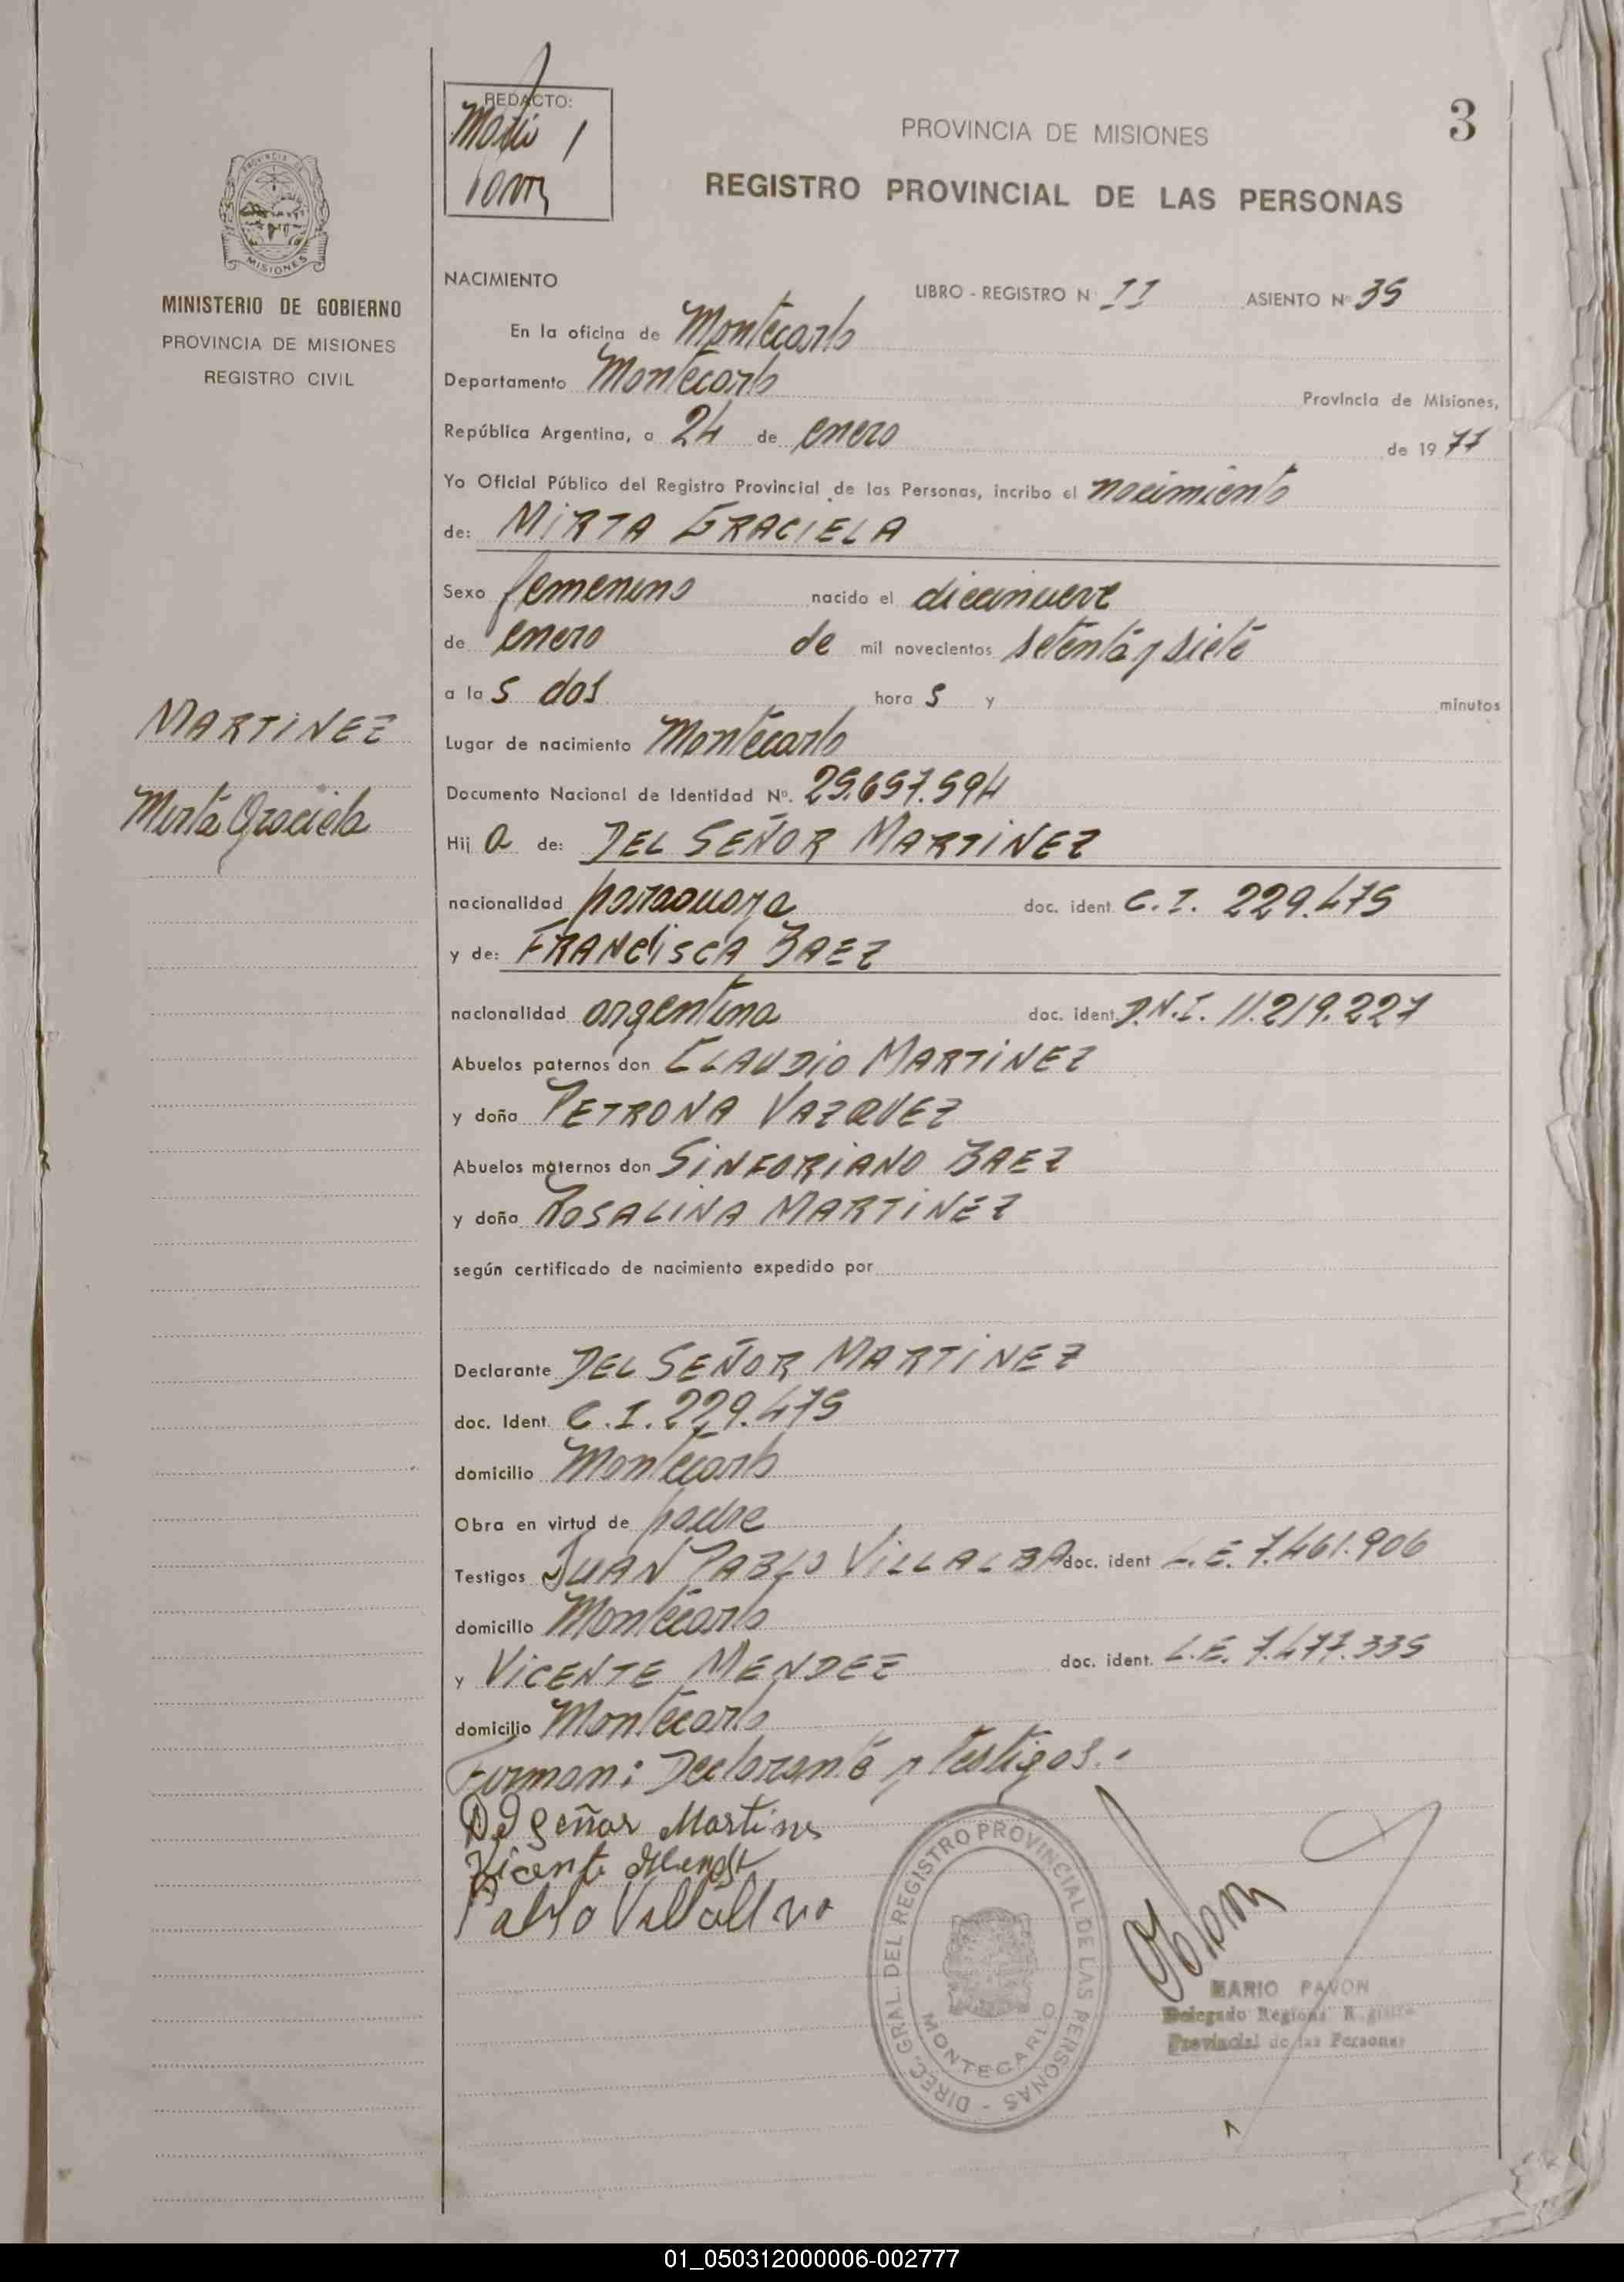 REDACTO:
3
PROVINCIA DE MISIONES
REGISTRO PROVINCIAL DE LAS PERSONAS
PROVINCIA DE
MISIONES
MINISTERIO DE GOBIERNO
PROVINCIA DE MISIONES
REGISTRO CIVIL
NACIMIENTO
LIBRO - REGISTRO N° II ASIENTO N° 35
En la oficina de Montecarlo
Departamento Montecarlo Provincia de Misiones,
República Argentina, a 24 de enero de 1977
Yo Oficial Público del Registro Provincial de las Personas, incribo el nacimiento
de: MIRTA GRACIELA
Sexo femenino nacido el diecinueve
de enero de mil novecientos setenta y siete
a las dos horas y minutos
MARTINEZ
Mirta Graciela
Lugar de nacimiento Montecarlo
Documento Nacional de Identidad N°. 25.657.594
Hija de: DEL SEÑOR MARTINEZ
nacionalidad paraguaya doc. ident. C.I. 229.475
y de: FRANCISCA BAEZ
nacionalidad argentina doc. ident. D.N.I. 11.219.227
Abuelos paternos don CLAUDIO MARTINEZ
y doña PETRONA VAZQUEZ
Abuelos maternos don SINFORIANO BAEZ
y doña ROSALINA MARTINEZ
según certificado de nacimiento expedido por
Declarante DEL SEÑOR MARTINEZ
doc. Ident. C.I. 229.475
domicilio Montecarlo
Obra en virtud de padre
Testigos JUAN PABLO VILLALBA doc. ident L.E. 7.461.906
domicilio Montecarlo
y VICENTE MENDEZ doc. ident. L.E. 7.477.335
domicilio Montecarlo
Firman: Declarante y testigos.
Del Señor Martines
Vicente Mendez
Pablo Villalba
DIREC. GRAL. DEL REGISTRO PROVINCIAL DE LAS PERSONAS -
MONTECARLO
MARIO PAVON
Delegado Regional Registro
Provincial de las Personas
01_050312000006-002777